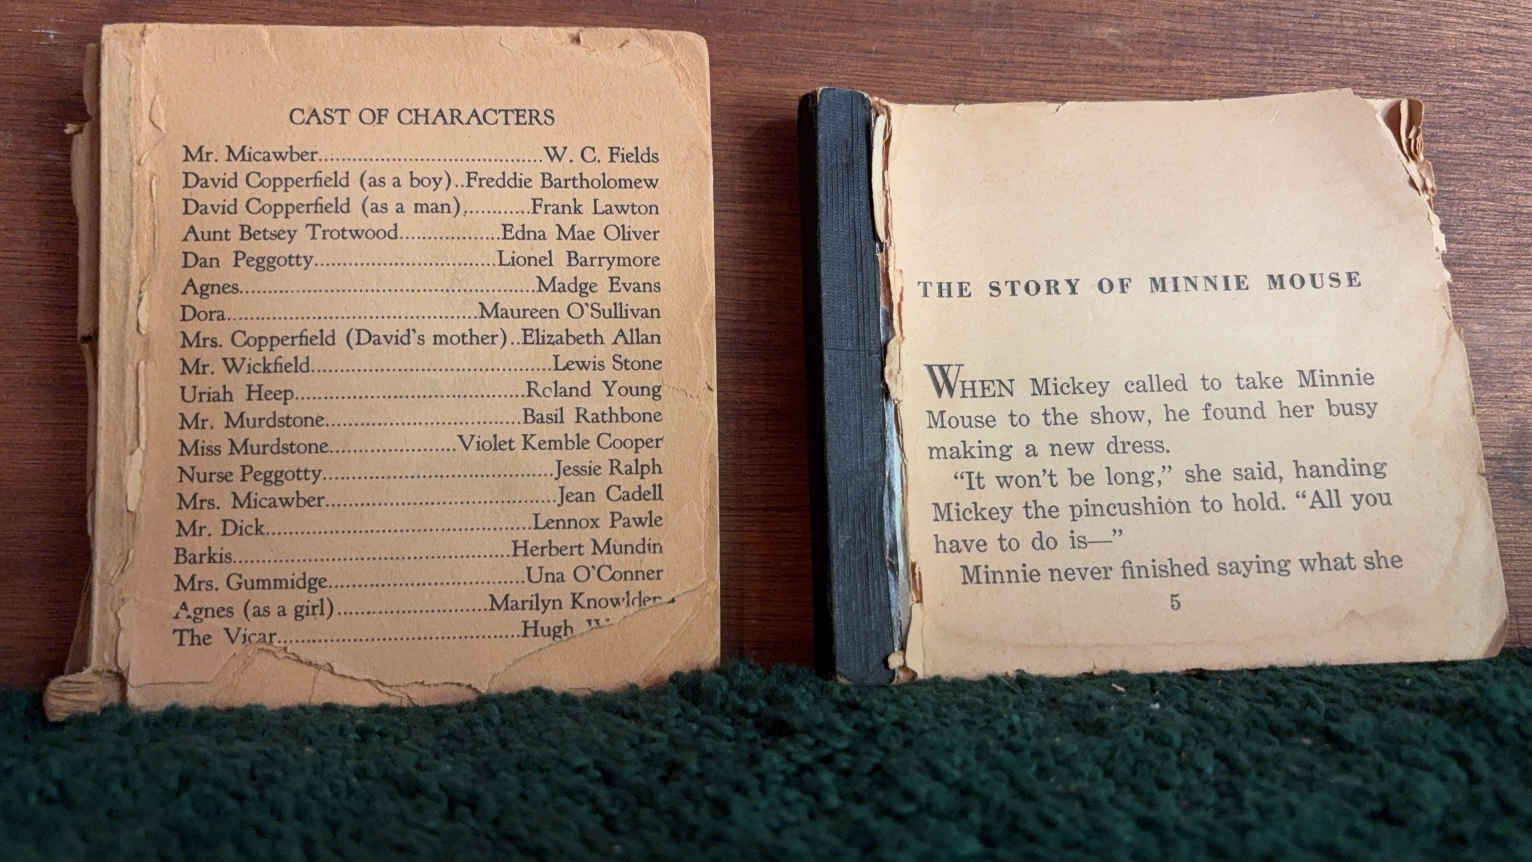 CAST OF CHARACTERS
Mr. Micawber........................................W. C. Fields
David Copperfield (as a boy)..Freddie Bartholomew
David Copperfield (as a man)............Frank Lawton
Aunt Betsey Trotwood..................Edna Mae Oliver
Dan Peggotty................................Lionel Barrymore
Agnes....................................................Madge Evans
Dora............................................Maureen O'Sullivan
Mrs. Copperfield (David's mother)..Elizabeth Allan
Mr. Wickfield..........................................Lewis Stone
Uriah Heep........................................Roland Young
Mr. Murdstone..................................Basil Rathbone
Miss Murdstone......................Violet Kemble Cooper
Nurse Peggotty........................................Jessie Ralph
Mrs. Micawber........................................Jean Cadell
Mr. Dick..............................................Lennox Pawle
Barkis................................................Herbert Mundin
Mrs. Gummidge..................................Una O'Conner
Agnes (as a girl)..........................Marilyn Knowlden
The Vicar..........................................Hugh
THE STORY OF MINNIE MOUSE
WHEN Mickey called to take Minnie
Mouse to the show, he found her busy
making a new dress.
“It won't be long,” she said, handing
Mickey the pincushion to hold. “All you
have to do is—”
Minnie never finished saying what she
5